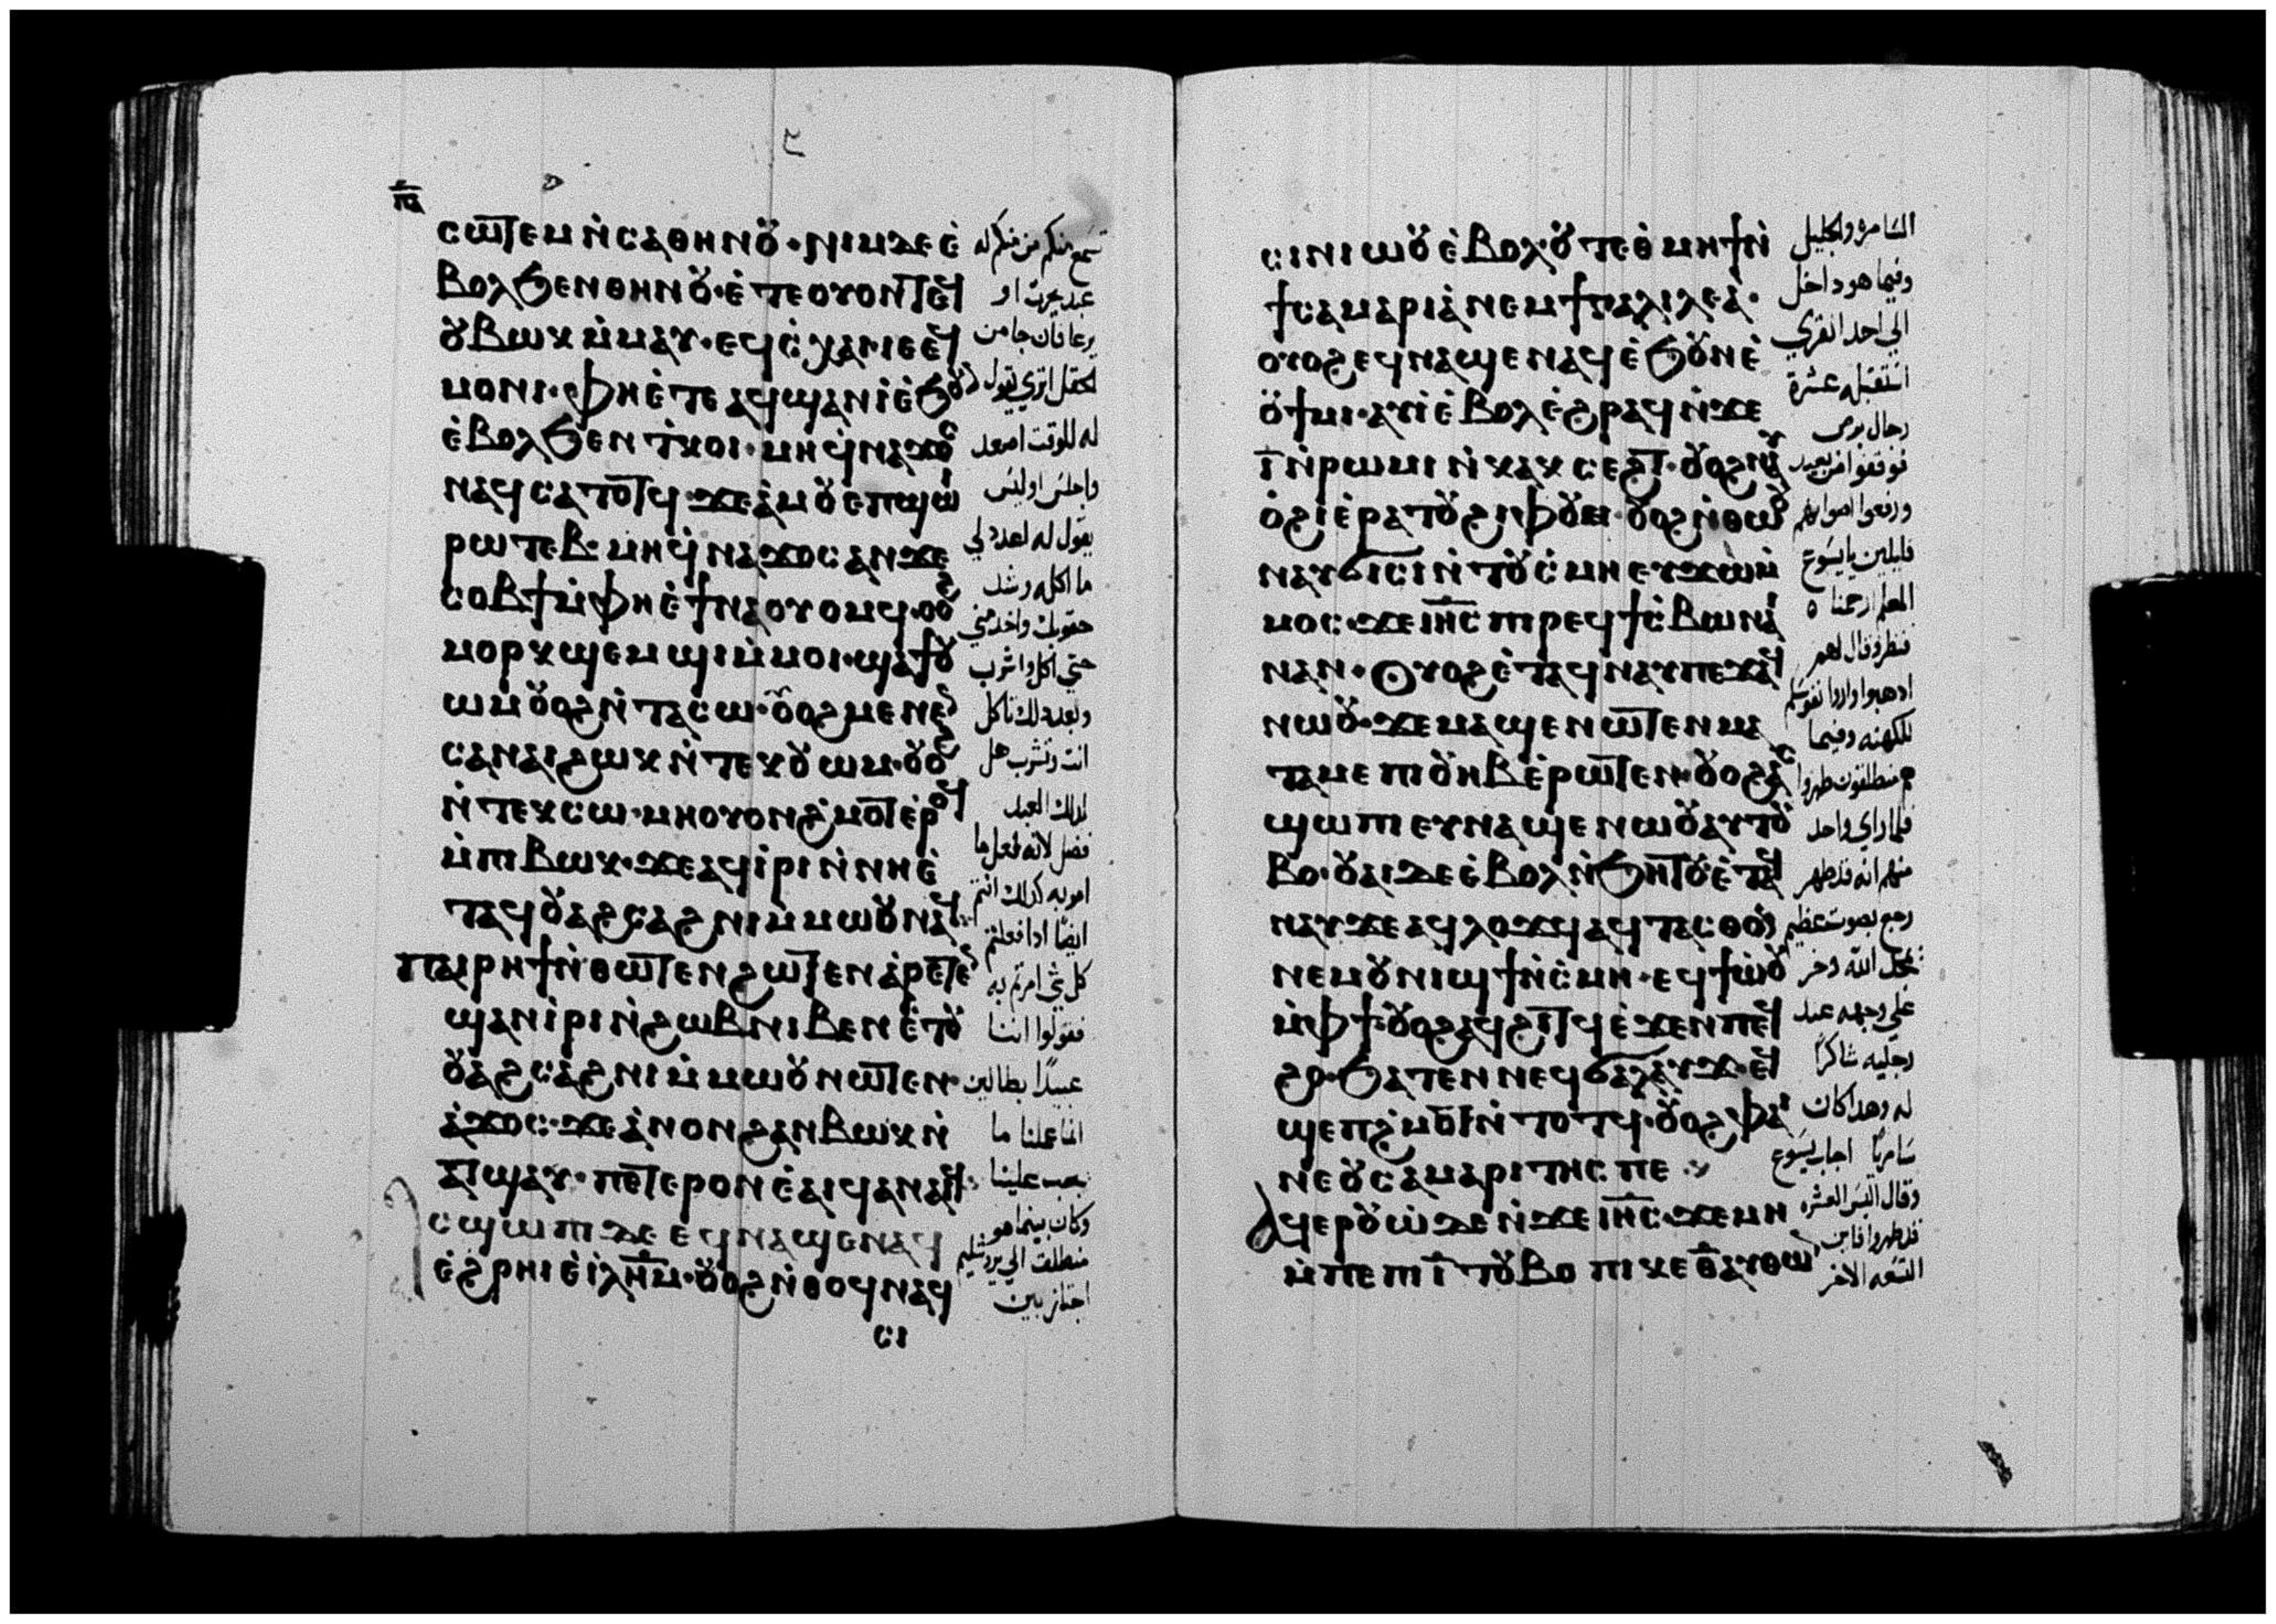 ⲡⲁ
ⲥⲱⲧⲉⲙ ⲛ̀ⲥⲁⲑⲏⲛⲟⲩ · ⲛⲓⲙ ⲇⲉ ⲉ̀
ⲃⲟⲗϧⲉⲛ ⲑⲏⲛⲟⲩ · ⲉ̀ⲧⲉⲟⲩⲟⲛⲧⲉϥ
ⲟⲩⲃⲱⲕ ⲙ̀ⲙⲁⲩ · ⲉϥⲥ̀ⲭⲁⲓ ⲓⲉ ⲉϥ
ⲙⲟⲛⲓ · ⲫⲏⲉ̀ⲧⲉ ⲁϥϣⲁⲛⲓ̀ ⲉ̀ϧⲟⲩ
ⲉ̀ⲃⲟⲗϧⲉⲛ ⲧ̀ⲕⲟⲓ · ⲙⲏ ϥ̀ⲛⲁϫⲟⲥ
ⲛⲁϥ ⲥⲁⲧⲟⲧϥ · ϫⲉ ⲁ̀ⲙⲟⲩ ⲉⲡϣⲱ
ⲣⲱⲧⲉⲃ · ⲙⲏ ϥ̀ⲛⲁϫⲟⲥ ⲁⲛ ϫⲉ
ⲥⲟⲃϯ ⲙ̀ⲫⲏⲉ̀ϯⲛⲁⲟⲩⲟⲙϥ · ⲟⲩⲟϩ
ⲙⲟⲣⲕ ϣⲉⲙϣⲓ ⲙ̀ⲙⲟⲓ · ϣⲁϯⲟⲩ
ⲱⲙ ⲟⲩⲟϩ ⲛ̀ⲧⲁⲥⲱ · ⲟⲩⲟϩ ⲙⲉⲛⲉⲛ
ⲥⲁⲛⲁⲓ ϩⲱⲕ ⲛ̀ⲧⲉⲕⲟⲩⲱⲙ · ⲟⲩⲟϩ
ⲛ̀ⲧⲉⲕⲥⲱ · ⲙⲏ ⲟⲩⲟⲛ ϩ̀ⲙⲟⲧ ⲉ̀ⲣⲟϥ
ⲙ̀ⲡⲓⲃⲱⲕ · ϫⲉ ⲁϥⲓ̀ⲣⲓ ⲛ̀ⲛⲏⲉ̀
ⲧⲁϥⲟⲩⲁϩⲥⲁϩⲛⲓ ⲙ̀ⲙⲱⲟⲩ ⲛⲁϥ
ⲡⲁⲓⲣⲏϯ ⲛ̀ⲑⲱⲧⲉⲛ ϩⲱⲧⲉⲛ ⲁ̀ⲣⲉⲧⲉⲛ
ϣⲁⲛⲓ̀ⲣⲓ ⲛ̀ϩⲱⲃ ⲛⲓⲃⲉⲛ ⲉ̀ⲧⲟⲩ
ⲟⲩⲁ̀ϩⲥⲁ̀ϩⲛⲓ ⲙ̀ⲙⲱⲟⲩ ⲛⲱⲧⲉⲛ ·
ⲁ̀ϫⲟⲥ · ϫⲉ ⲁ̀ⲛⲟⲛ ϩⲁⲛⲃⲱⲕ ⲛ̀
ⲁⲧϣⲁⲩ · ⲡⲉⲧⲉⲣⲟⲛ ⲉ̀ⲁⲓϥ ⲁⲛⲁⲓϥ
ⲥϣⲱⲡⲓ ⲇⲉ ⲉϥⲛⲁϣⲉⲛⲁϥ
ⲉ̀ϩⲣⲏⲓ ⲉ̀ⲓ̀ⲗⲏⲙ · ⲟⲩⲟϩ ⲛ̀ⲑⲟϥ ⲛⲁϥ
ⲥⲓ
تسمع منكم من منكم له
عبد يحرث او
يرعا فان جا من
الحقل اتري يقول
له للوقت اصعد
واجلس اوليس
يقول له اعدد لي
ما اكله وشد
حقويك واخدمني
حتي اكل واشرب
وبعد ذلك تاكل
انت وتشرب هل
لذلك العبد
فضل لانه فعل ما
امر به كذلك انتم
ايضا اذا فعلتم
كل شي امرتم به
فقولوا اننا
عبيدا بطالين
انما عملنا ما
يجب علينا
وكان بينما هو
منطلق الي يروشليم
اجتاز بين
ⲥⲓⲛⲓⲱⲟⲩ ⲉ̀ⲃⲟⲗ ⲟⲩⲧⲉ ⲑⲙⲏϯ ⲛ̀
ϯⲥⲁⲙⲁⲣⲓⲁ̀ ⲛⲉⲙ ϯⲅⲁⲗⲓⲗⲉⲁ̀ ·
ⲟⲩⲟϩ ⲉϥⲛⲁϣⲉⲛⲁϥ ⲉ̀ϧⲟⲩⲛ ⲉ̀
ⲟⲩϯⲙⲓ · ⲁⲩⲓ̀ ⲉ̀ⲃⲟⲗ ⲉ̀ϩⲣⲁϥ ⲛ̀ϫⲉ
ⲓ̅ ⲛ̀ⲣⲱⲙⲓ ⲛ̀ⲕⲁⲕⲥⲉϩⲧ · ⲟⲩⲟϩ ⲛⲁⲩ
ⲟ̀ϩⲓ ⲉ̀ⲣⲁⲧⲟⲩ ϩⲓⲫⲟⲩⲉⲓ · ⲟⲩⲟϩ ⲛ̀ⲑⲱⲟⲩ
ⲛⲁⲩϭⲓⲥⲓ ⲛ̀ⲧⲟⲩⲥ̀ⲙⲏ ⲉⲩϫⲱ ⲙ̀
ⲙⲟⲥ · ϫⲉ ⲓⲏⲥ ⲡⲓⲣⲉϥϯⲥ̀ⲃⲱ ⲛⲁⲓ
ⲛⲁⲛ · ⲟⲩⲟϩ ⲉ̀ⲧⲁϥⲛⲁⲩ ⲡⲉϫⲁϥ
ⲛⲱⲟⲩ · ϫⲉ ⲙⲁϣⲉⲛⲱⲧⲉⲛ ⲙⲁ
ⲧⲁⲙⲉ ⲡⲓⲟⲩⲏⲃ ⲉ̀ⲣⲱⲧⲉⲛ · ⲟⲩⲟϩ ⲁⲥ
ϣⲱⲡⲓ ⲉⲩⲛⲁϣⲉⲛⲱⲟⲩ ⲁⲩⲧⲟⲩ
ⲃⲟ · ⲟⲩⲁⲓ ⲇⲉ ⲉ̀ⲃⲟⲗ ⲛ̀ϧⲏⲧⲟⲩ ⲉ̀ⲧⲁϥ
ⲛⲁⲩ ϫⲉ ⲁϥⲗⲟϫϥ ⲁϥⲧⲁⲥⲑⲟ
ⲛⲉⲙ ⲟⲩⲛⲓϣϯ ⲛ̀ⲥ̀ⲙⲏ · ⲉϥϯⲱ̀ⲟⲩ
ⲙ̀ⲫϯ · ⲟⲩⲟϩ ⲁϥϩⲓⲧϥ ⲉ̀ϫⲉⲛ ⲡⲉϥ
ϩⲟ · ϧⲁⲧⲉⲛ ⲛⲉϥϭⲁⲗⲁⲩϫ · ⲉϥ
ϣⲉⲡϩ̀ⲙⲟⲧ ⲛ̀ⲧⲟⲧϥ · ⲟⲩⲟϩ ⲫⲁⲓ
ⲛⲉ ⲟⲩⲥⲁⲙⲁⲣⲓⲧⲏⲥ ⲡⲉ
ⲁϥⲉⲣⲟⲩⲱ̀ ⲇⲉ ⲛ̀ϫⲉ ⲓⲏⲥ · ϫⲉ ⲙⲏ
ⲙ̀ⲡⲉ ⲡⲓⲓ̅ ⲧⲟⲩⲃⲟ ⲡⲓⲕⲉⲑ̅ ⲁⲩⲑⲱ
السامرة والجليل
وفيما هو داخل
الي احد القري
استقبله عشرة
رجال برص
فوقفوا من بعيد
ورفعوا اصواتهم
قايلين يا يسوع
المعلم ارحمنا
فنظر وقال لهم
اذهبوا واروا نفوسكم
للكهنه وفيما
هم منطلقون طهروا
فلما راي واحد
منهم انه قد طهر
رجع بصوت عظيم
يمجد الله وخر
علي وجهه عند
رجليه شاكرا
له وهذا كان
سامريا اجاب يسوع
وقال اليس العشره
قد طهروا فاين
التسعه الاخر